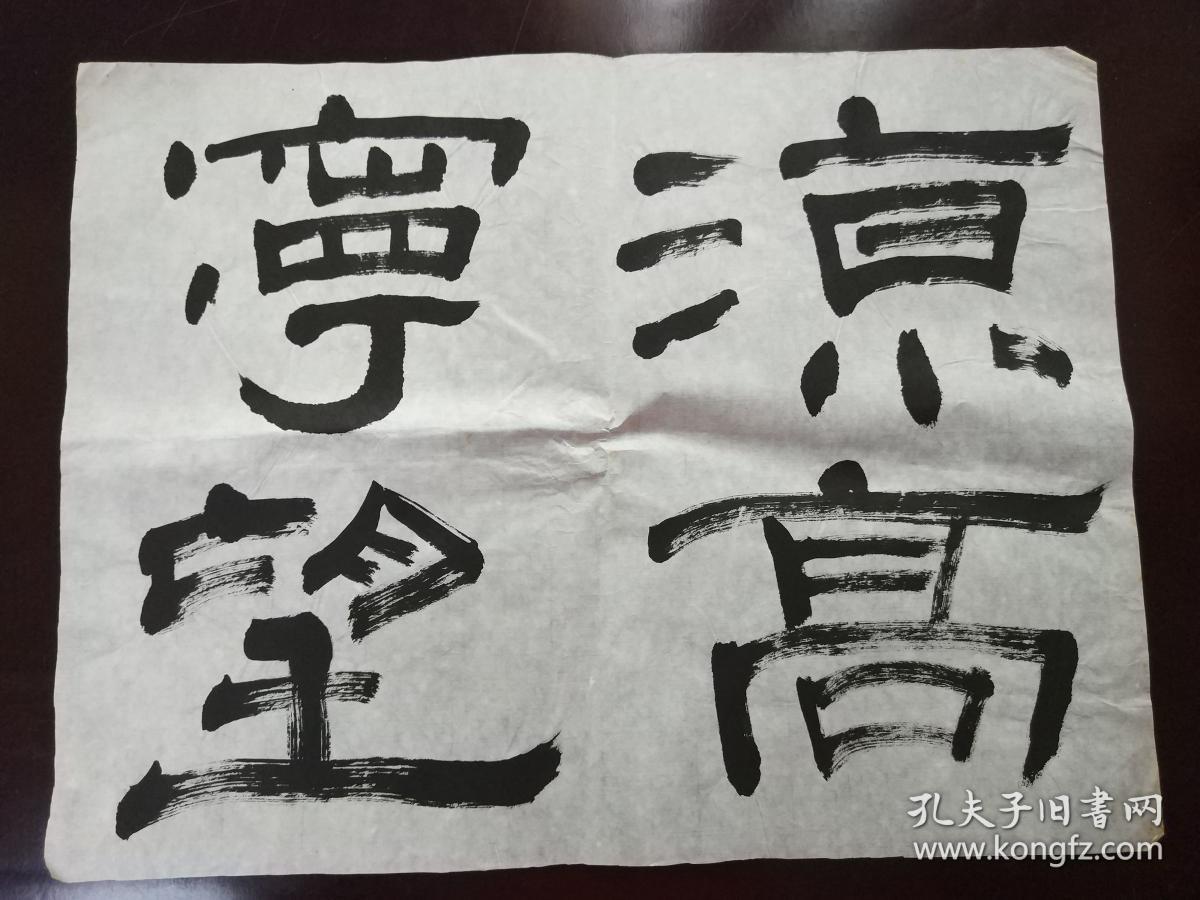 涼高
寧望
孔夫子旧書网
www.kongfz.com